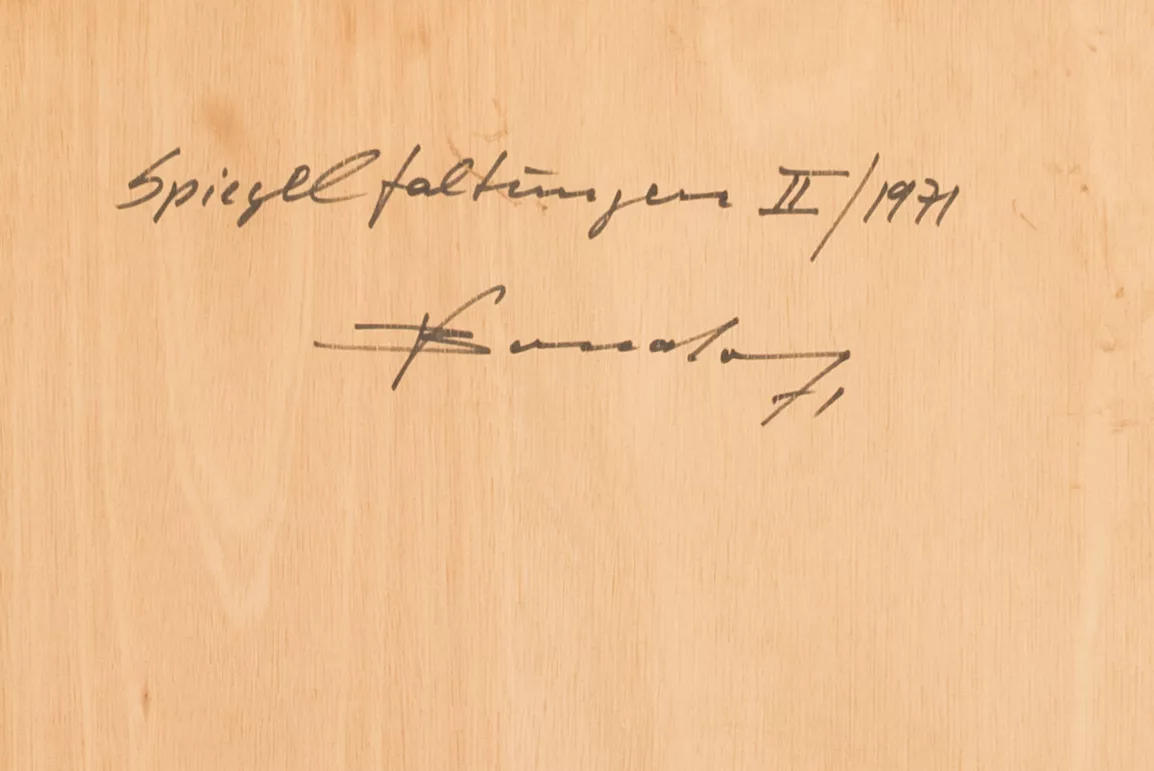 Spiegelfaltungen II/1971
71